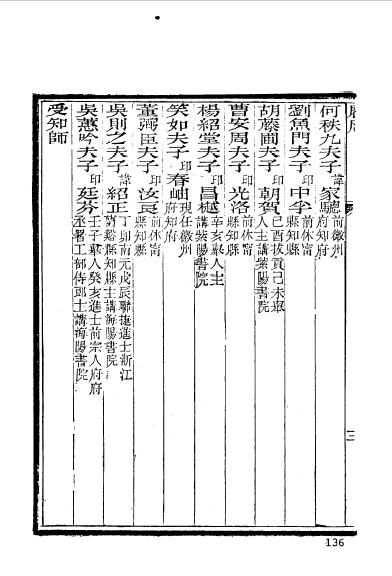 何秩九夫子 諱 家驄 前徽州府知府
劉魚門夫子 印 中孚 前休甯縣知縣
胡蔭圃夫子 印 朝賀 己酉拔貢己未舉人主講紫陽書院
曹安周夫子 印 光洛 前休甯縣知縣
楊紹堂夫子 印 昌樾 辛亥舉人主講紫陽書院
笑如夫子 印 春岫 現任徽州府知府
董弼臣夫子 印 汝良 前休甯縣知縣
吳則之夫子 諱 紹正 丁卯南元戊辰聯捷進士浙江蘭谿縣知縣主講海陽書院
吳蕙吟夫子 印 廷芬 壬子舉人癸亥進士前宗人府府丞署工部侍郎主講海陽書院
受知師
三
136